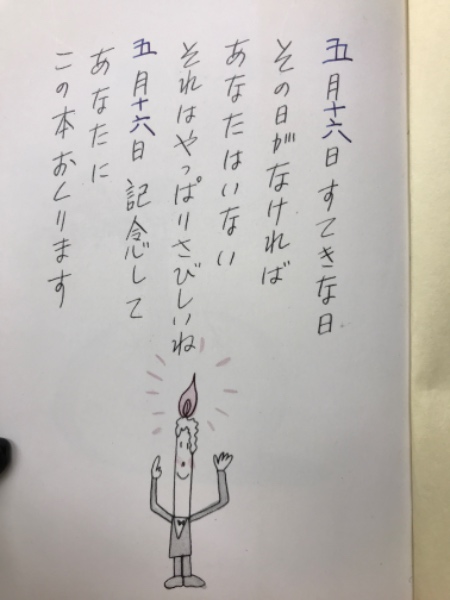 五月十六日すてきな日
その日がなければ
あなたはいない
それはやっぱりさびしいね
五月十六日 記念して
あなたに
この本おくります